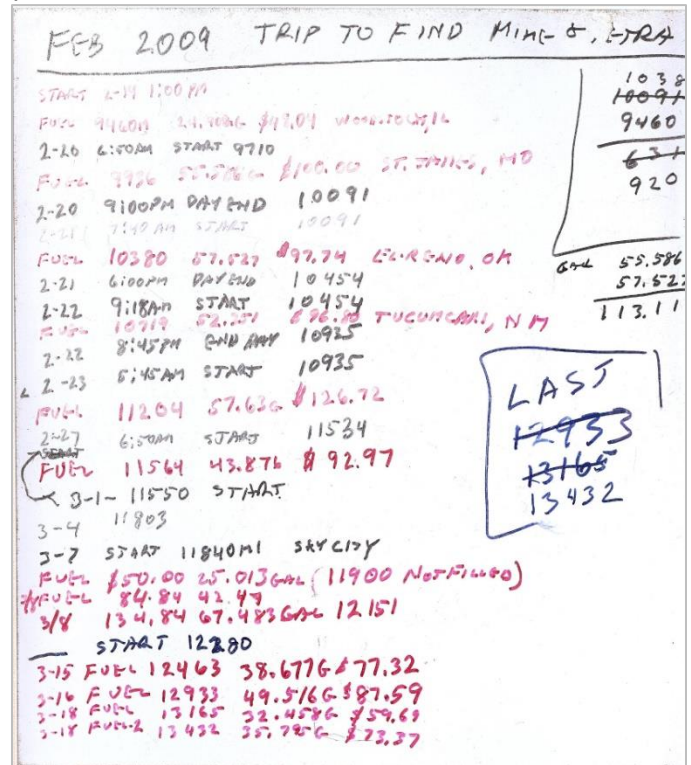 FEB 2009 TRIP TO FIND MINE &. ETRA
START 2-19 1:00 PM
FUEL 9460 $47.04
2-20 6:50AM START 9710
FUEL 9936 55.586G $100.00 ST. JAMES, MO
2-20 9:00PM DAY END 10091
2-21 7:40 AM START 10091
FUEL 10380 57.527 $97.74 EL-RENO, OK
2-21 6:00PM DAY END 10454
2-22 9:18AM START 10454
FUEL 10719 52.251 $86.80 TUCUMCARI, NM
2-22 8:45PM END DAY 10935
2-23 5:45AM START 10935
FUEL 11204 57.63G $126.72
2-27 6:50AM START 11534
START
FUEL 11564 43.876 $92.97
3-1- 11550 START
3-4 11803
3-7 START 11840MI SKY CITY
FUEL $50.00 25.013GAL (11900 NOT FILLED)
FUEL 84.84 42.47
3/8 134.84 67.483GAL 12151
START 12280
3-15 FUEL 12463 38.677G $77.32
3-16 FUEL 12933 49.516G $87.59
3-18 FUEL 13165 32.458G $59.69
3-18 FUEL-2 13432 35.795G $73.37
1038
10091
9460
631
920
GAL 55.586
57.527
113.11
LAST
12933
13165
13432